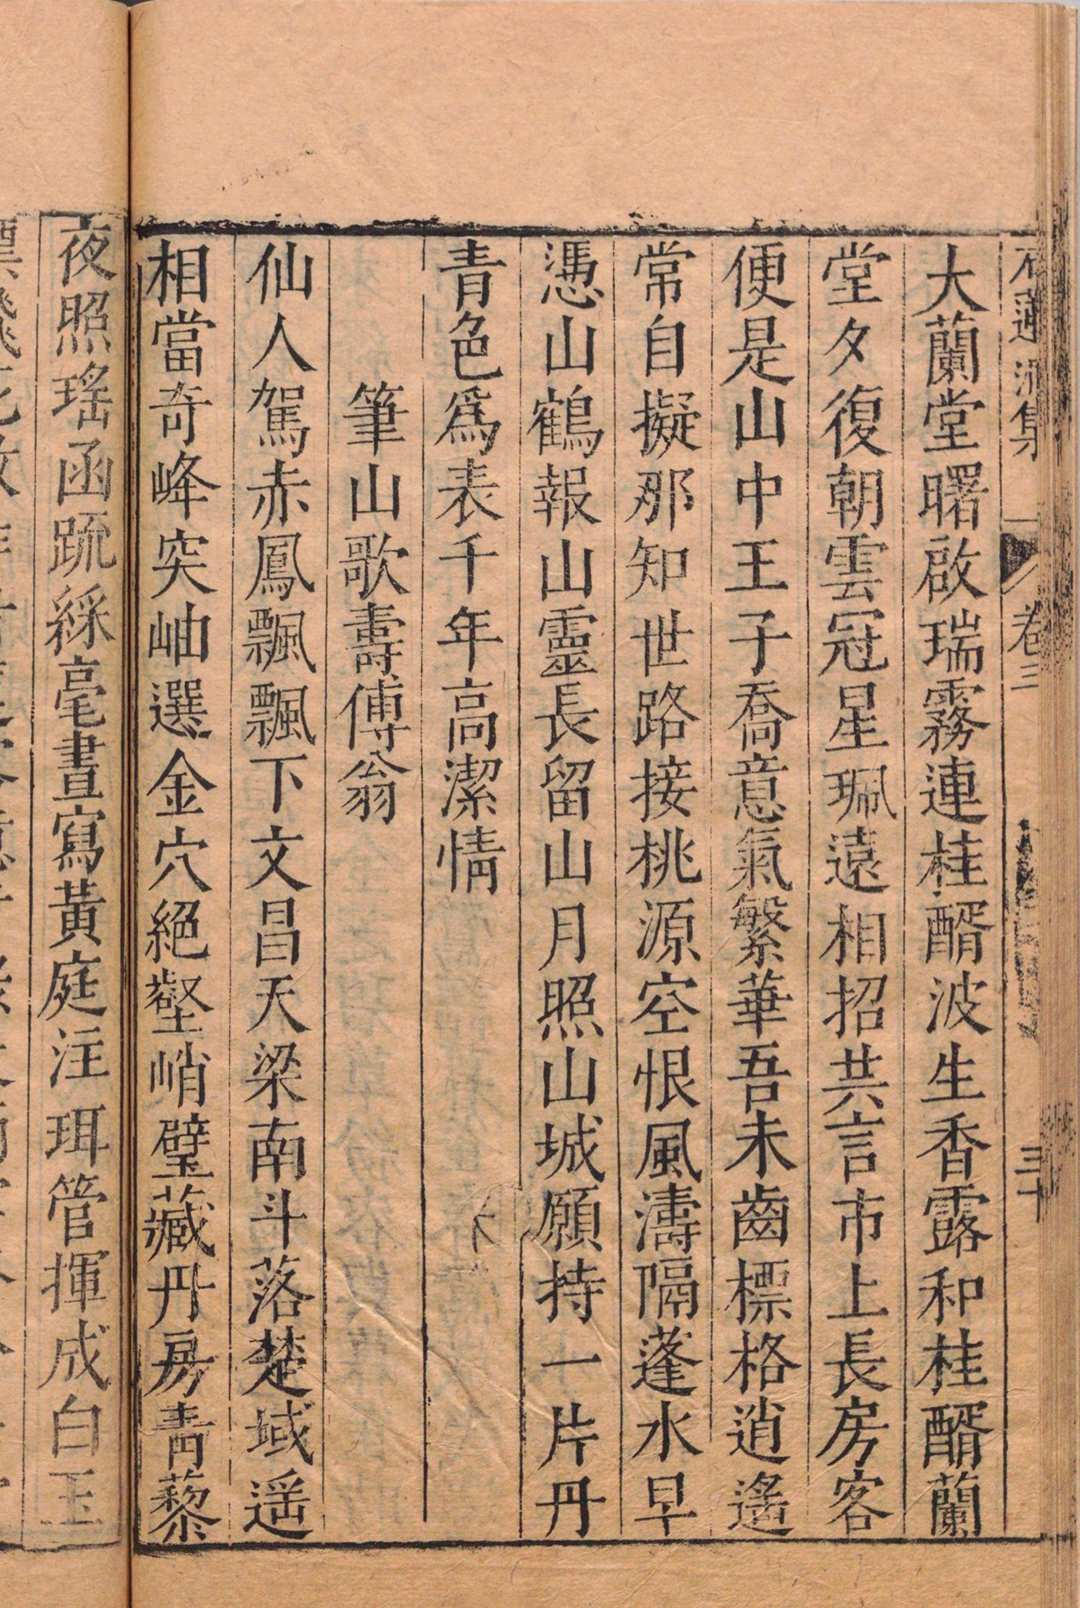 集 卷三 三十
大蘭堂曙啟瑞霧連桂醑波生香露和桂醑蘭
堂夕復朝雲冠星珮遠相招共言市上長房客
便是山中王子喬意氣繁華吾未齒標格逍遙
常自擬那知世路接桃源空恨風濤隔蓬水早
憑山鶴報山靈長留山月照山城願持一片丹
青色為表千年高潔情
筆山歌壽傅翁
仙人駕赤鳳飄飄下文昌天梁南斗落楚域遥
相當奇峰突岫選金穴絕壑峭壁藏丹房青藜
夜照瑤函疏綵毫晝寫黃庭注珥管揮成白玉